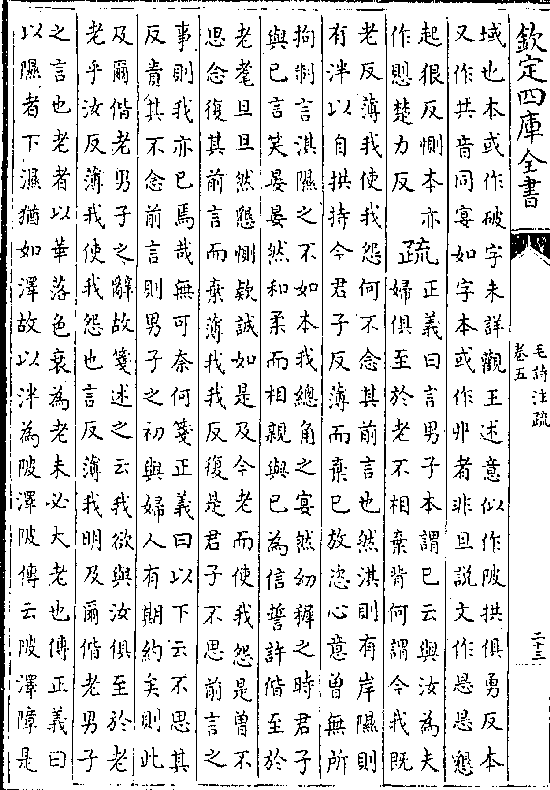 欽定四庫全書
毛詩注疏
卷五
二十三
域也本或作破字未詳觀王述意似作陂拱俱勇反本
又作共音同宴如字本或作丱者非旦說文作㫜㫜懇
起很反惻本亦
作㥽楚力反
疏正義曰言男子本謂已云與汝為夫
婦俱至於老不相棄背何謂今我既
老反薄我使我怨何不念其前言也然淇則有岸隰則
有泮以自拱持今君子反薄而棄已放恣心意曾無所
拘制言淇隰之不如本我總角之宴然幼稺之時君子
與已言笑晏晏然和柔而相親與已為信誓許偕至於
老老耄旦旦然懇惻款誠如是及今老而使我怨是曾不
思念復其前言而棄薄我我反復是君子不思前言之
事則我亦已焉哉無可奈何箋正義曰以下云不思其
反責其不念前言則男子之初與婦人有期約矣則此
及爾偕老男子之辭故箋述之云我欲與汝俱至於老
老乎汝反薄我使我怨也言反薄我明及爾偕老男子
之言也老者以華落色衰為老未必大老也傳正義曰
以隰者下濕猶如澤故以泮為陂澤陂傳云陂澤障是